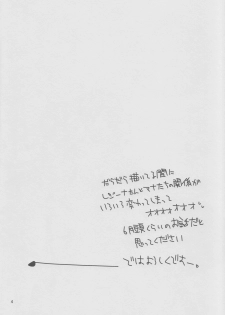 だらだら描いてる間に
レジーナさんとマナたちの関係が
いろいろ変わってしまって
オオオオオオ。
6月頭くらいのお話だと
思ってください
ではよろしくですー。